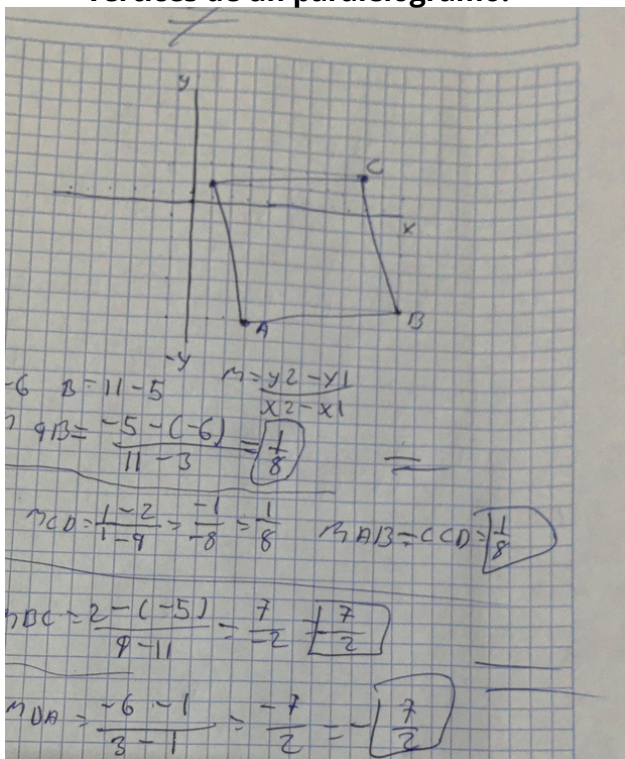 vértices de un paralelogramo.
y
C
x
A
B
-y
-6 B = 11 - 5 m = y2 - y1 / x2 - x1
AB = -5 - (-6) / 11 - 3 = 1/8
mCD = 1 - 2 / 1 - 9 = -1/-8 = 1/8 mAB = CCD = 1/8
mBC = 2 - (-5) / 9 - 11 = 7/-2 = -7/2
mDA = -6 - 1 / 3 - 1 = -7/2 = -7/2